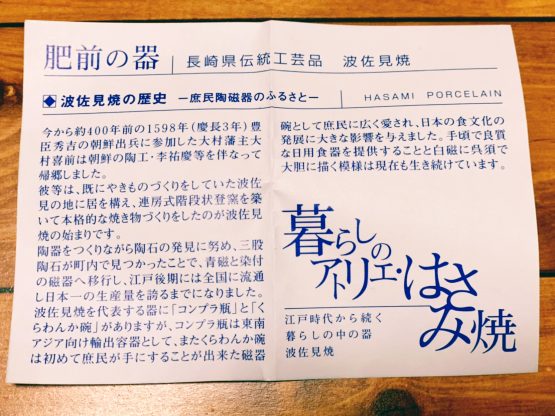 肥前の器
長崎県伝統工芸品　波佐見焼
◆波佐見焼の歴史　—庶民陶磁器のふるさと—
HASAMI　PORCELAIN
今から約400年前の1598年(慶長3年)豊
臣秀吉の朝鮮出兵に参加した大村藩主大
村喜前は朝鮮の陶工・李祐慶等を伴なって
帰郷しました。
彼等は、既にやきものづくりをしていた波佐
見の地に居を構え、連房式階段状登窯を築
いて本格的な焼き物づくりをしたのが波佐見
焼の始まりです。
陶器をつくりながら陶石の発見に努め、三股
陶石が町内で見つかったことで、青磁と染付
の磁器へ移行し、江戸後期には全国に流通
し日本一の生産量を誇るまでになりました。
波佐見焼を代表する器に「コンプラ瓶」と「く
らわんか碗」がありますが、コンプラ瓶は東南
アジア向け輸出容器として、またくらわんか碗
は初めて庶民が手にすることが出来た磁器
碗として庶民に広く愛され、日本の食文化の
発展に大きな影響を与えました。手頃で良質
な日用食器を提供することと白磁に呉須で
大胆に描く模様は現在も生き続けています。
暮らしの
アトリエ・はさみ焼
江戸時代から続く
暮らしの中の器
波佐見焼